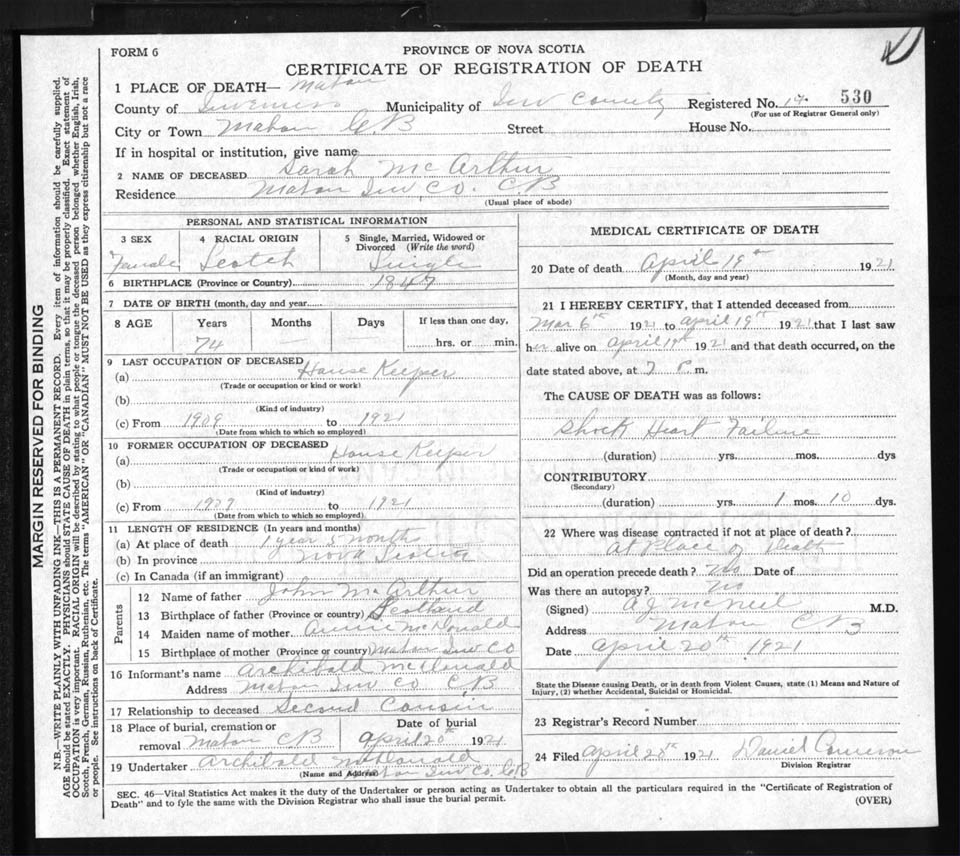 FORM 6
PROVINCE OF NOVA SCOTIA
CERTIFICATE OF REGISTRATION OF DEATH
1 PLACE OF DEATH— Mabou
County of Inverness Municipality of Inv County Registered No. 530
(For use of Registrar General only)
City or Town Mabou C.B Street House No.
If in hospital or institution, give name
2 NAME OF DECEASED Sarah McArthur
Residence Mabou Inv Co. C.B
(Usual place of abode)
PERSONAL AND STATISTICAL INFORMATION
3 SEX 4 RACIAL ORIGIN 5 Single, Married, Widowed or Divorced (Write the word)
Female Scotch Single
6 BIRTHPLACE (Province or Country) 1847
7 DATE OF BIRTH (month, day and year)
8 AGE Years Months Days If less than one day,
74 hrs. or min.
9 LAST OCCUPATION OF DECEASED
(a) House Keeper
(Trade or occupation or kind or work)
(b)
(Kind of industry)
(c) From to 1921
(Date from which to which so employed)
10 FORMER OCCUPATION OF DECEASED
(a) House Keeper
(Trade or occupation or kind of work)
(b)
(Kind of industry)
(c) From to 1921
(Date from which to which so employed)
11 LENGTH OF RESIDENCE (In years and months)
(a) At place of death 1 year 5 months
(b) In province Nova Scotia
(c) In Canada (if an immigrant)
Parents
12 Name of father John McArthur
13 Birthplace of father (Province or country) Scotland
14 Maiden name of mother Annie McDonald
15 Birthplace of mother (Province or country) Mabou Inv Co
16 Informant's name Archibald McDonald
Address Mabou Inv Co C.B
17 Relationship to deceased Second Cousin
18 Place of burial, cremation or removal Mabou C.B
Date of burial
April 20th 1921
19 Undertaker Archibald McDonald
(Name and Address) Mabou Inv Co. C.B
MEDICAL CERTIFICATE OF DEATH
20 Date of death April 19th 1921
(Month, day and year)
21 I HEREBY CERTIFY, that I attended deceased from
Mar 6th 1921 to April 19th 1921 that I last saw
her alive on April 19th 1921 and that death occurred, on the
date stated above, at m.
The CAUSE OF DEATH was as follows:
Shock Heart Failure
(duration) yrs. mos. dys
CONTRIBUTORY
(Secondary)
(duration) yrs. 1 mos. 10 dys.
22 Where was disease contracted if not at place of death?
At Place of Death
Did an operation precede death? No Date of
Was there an autopsy? No
(Signed) A J McNeil M.D.
Address Mabou C.B
Date April 20th 1921
State the Disease causing Death, or in death from Violent Causes, state (1) Means and Nature of
Injury, (2) whether Accidental, Suicidal or Homicidal.
23 Registrar's Record Number
24 Filed April 1921 Daniel Cameron
Division Registrar
SEC. 46—Vital Statistics Act makes it the duty of the Undertaker or person acting as Undertaker to obtain all the particulars required in the "Certificate of Registration of
Death" and to fyle the same with the Division Registrar who shall issue the burial permit.
(OVER)
MARGIN RESERVED FOR BINDING
N.B.—WRITE PLAINLY WITH UNFADING INK—THIS IS A PERMANENT RECORD. Every item of information should be carefully supplied.
AGE should be stated EXACTLY. PHYSICIANS should STATE CAUSE OF DEATH in plain terms, so that it may be properly classified. Exact statement of
OCCUPATION is very important. RACIAL ORIGIN will be described by stating to what people or tongue the deceased person belonged whether English, Irish,
Scotch, French, German, Russian, Ruthenian, etc. The terms "AMERICAN" OR "CANADIAN" MUST NOT BE USED as they express citizenship but not a race
or people. See instructions on back of Certificate.